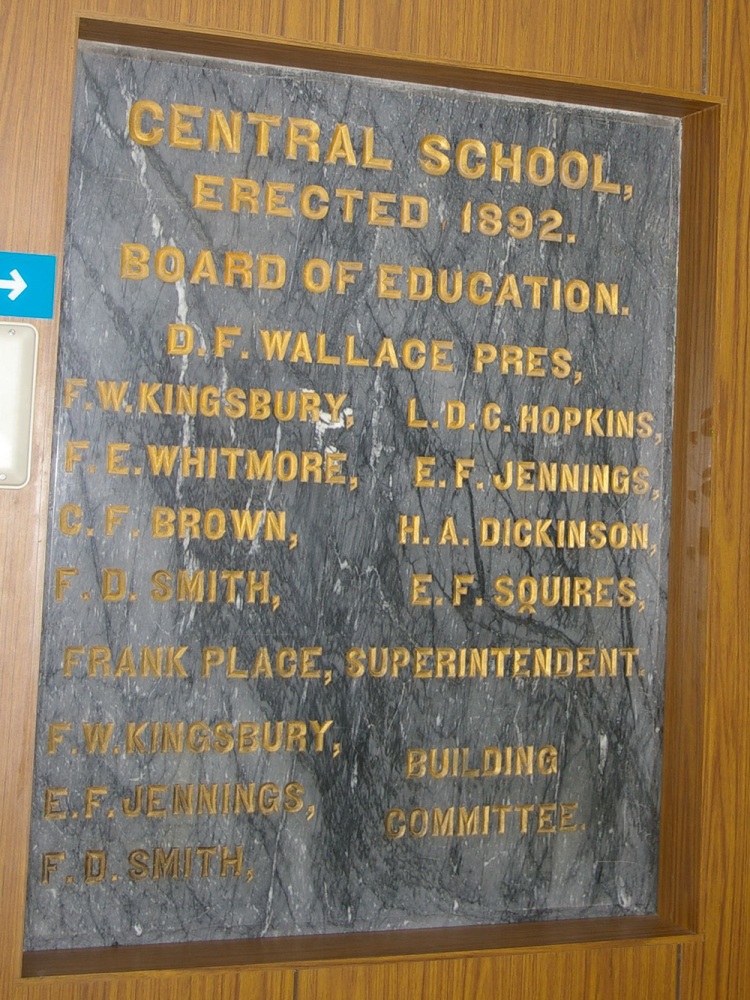 CENTRAL SCHOOL,
ERECTED 1892.
BOARD OF EDUCATION.
D. F. WALLACE PRES,
F. W. KINGSBURY, L. D. C. HOPKINS,
F. E. WHITMORE, E. F. JENNINGS,
C. F. BROWN, H. A. DICKINSON,
F. D. SMITH, E. F. SQUIRES,
FRANK PLACE, SUPERINTENDENT.
F. W. KINGSBURY,
E. F. JENNINGS,
F. D. SMITH,
BUILDING
COMMITTEE.